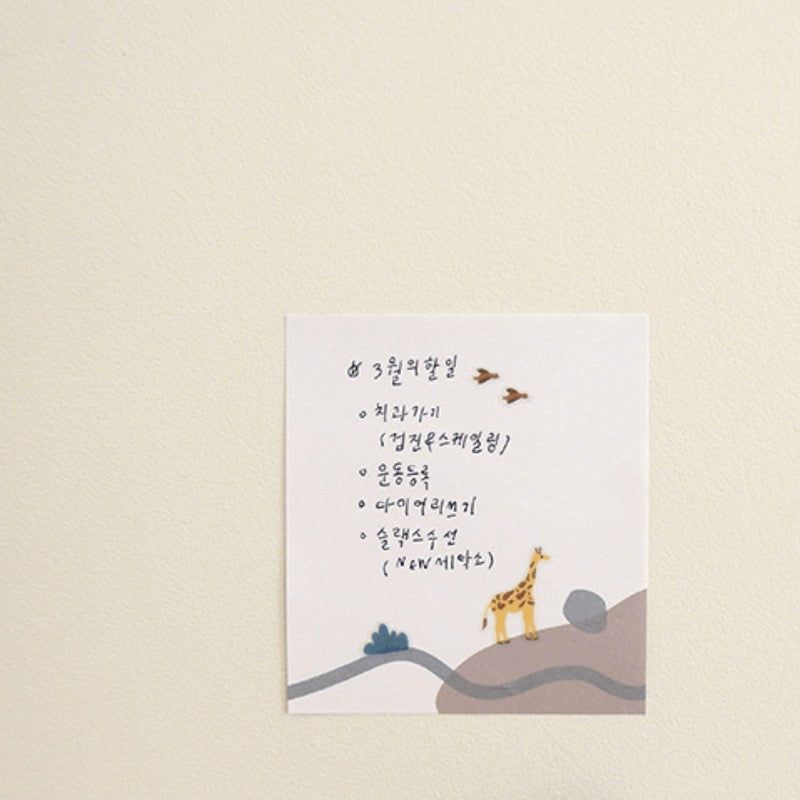 3월의할일
◦ 치과가기
(검진&스케일링)
◦ 운동등록
◦ 다이어리쓰기
◦ 슬랙스수선
(NEW세탁소)